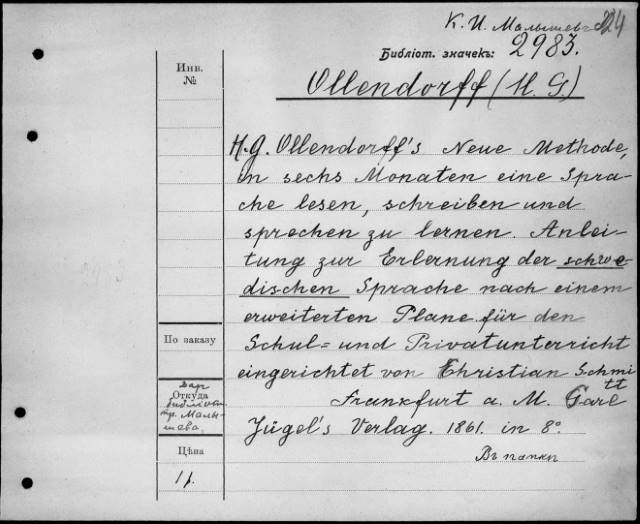 К. И. Малышевъ 224
Библіот. значекъ: 2983.
Инв.
№
Ollendorff (H. G)
H. G. Ollendorff's Neue Methode,
in sechs Monaten eine Spra-
che lesen, schreiben und
sprechen zu lernen. Anlei-
tung zur Erlernung der schwe
dischen Sprache nach einem
erweiterten Plane für den
Schul= und Privatunterricht
eingerichtet von Christian Schmi
tt
Frankfurt a. M. Carl
Jügel's Verlag. 1861. in 8°.
Въ папкѣ
По заказу
Даръ
Откуда
библіот.
пр. Малы-
шева.
Цѣна
1 р.